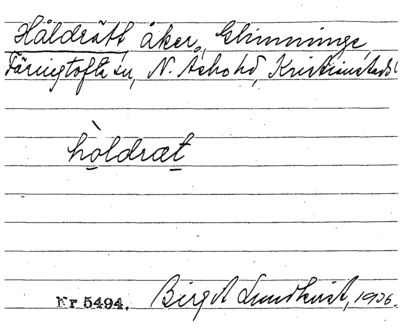 Håldrätt, åker, Glimminge
Färingtofta sn, N. Åsbo hd, Kristianstads l
hòldræt
Nr 5494. Birgit Lundkvist, 1936.